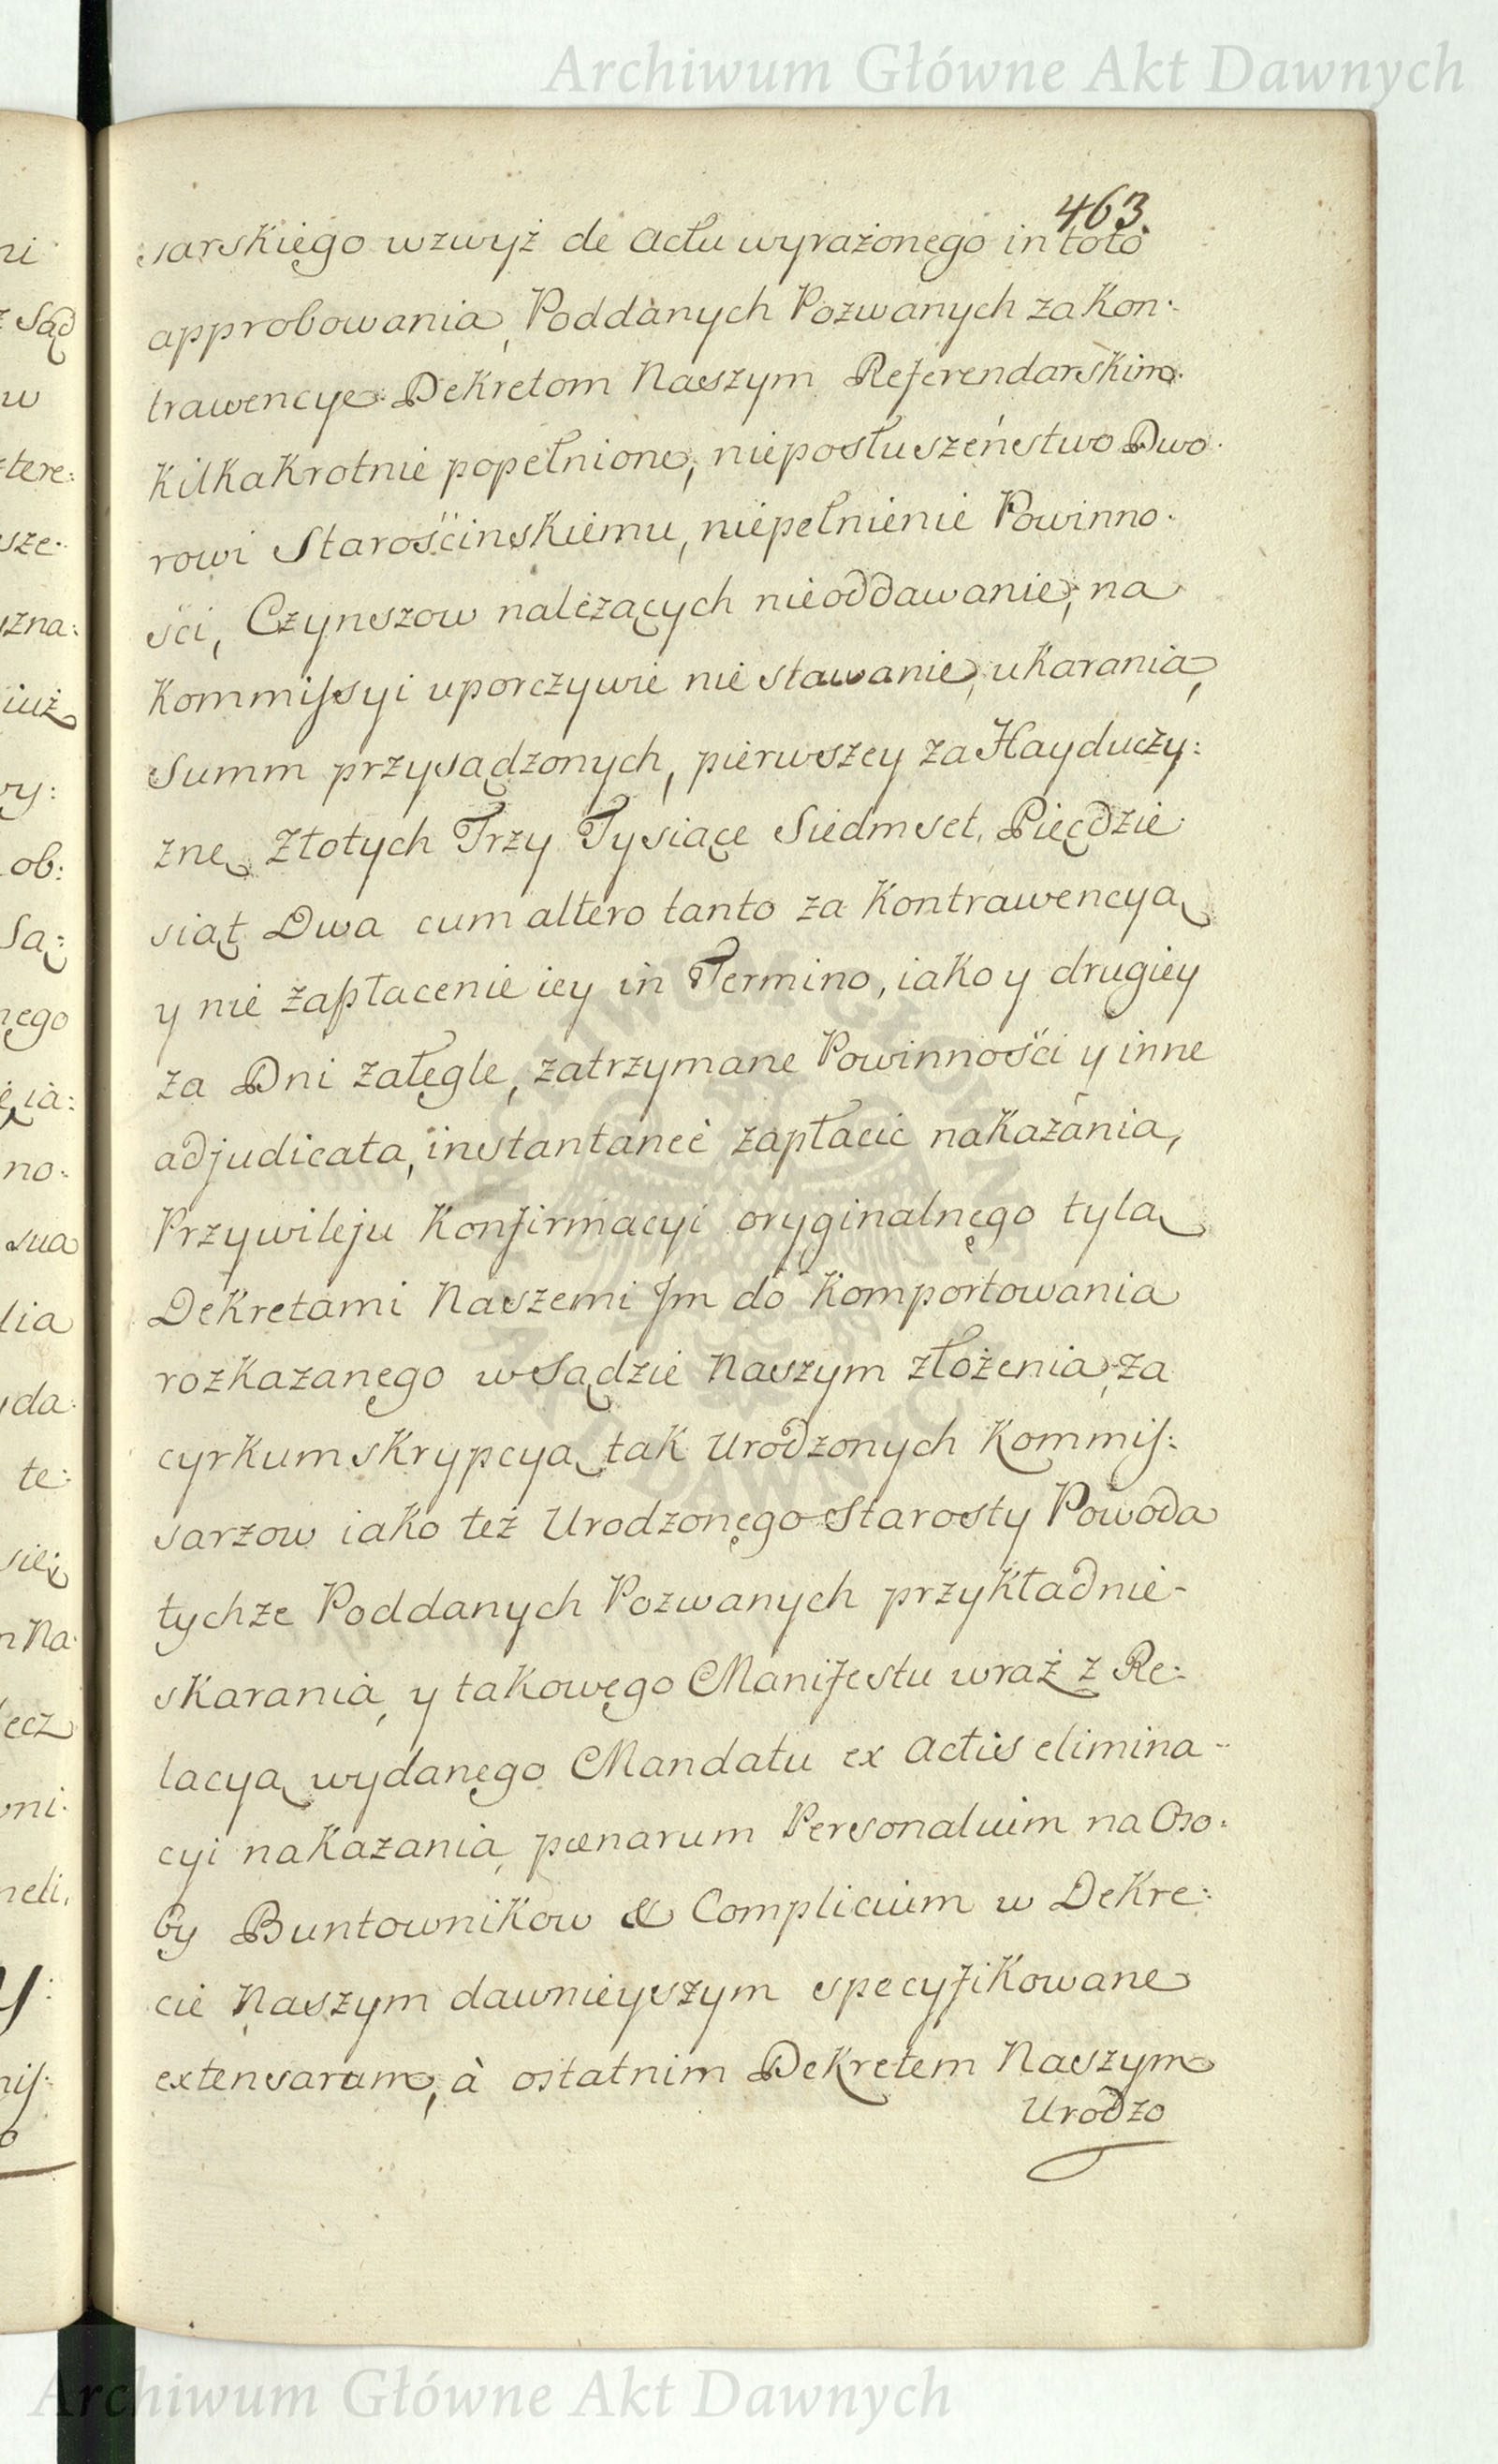 Archiwum Główne Akt Dawnych
463.
sarskiego wzwyż de Actu wyrażonego in toto
approbowania, Poddanych Pozwanych za Kon:
trawencye Dekretom Naszym Referendarskim
kilkakrotnie popełnione, nieposłuszeństwo Dwo:
rowi Starościnskiemu, niepełnienie Powinno:
ści, Czynszow należących nieoddawanie, na
Kommissyi uporczywie nie stawanie, ukarania,
Summ przysądzonych, pierwszey za Hayduczy:
znę Złotych Trzy Tysiące Siedmset Pięcdzie
siąt Dwa cum altero tanto za Kontrawencyą
y nie zapłacenie iey in Termino, iako y drugiey
za Dni zaległe, zatrzymane Powinności y inne
adjudicata, instantaneè zapłacic nakazania,
Przywileju Konfirmacyi oryginalnego tylą
Dekretami Naszemi Jm do komportowania
rozkazanego w Sądzie Naszym złożenia, za
cyrkumskrypcyą tak Urodzonych Kommis:
sarzow iako też Urodzonego Starosty Powoda
tychże Poddanych Pozwanych przykładnie
skarania, y takowego Manifestu wraz z Re:
lacyą wydanego Mandatu ex Actis elimina
cyi nakazania, pœnarum Personalium na Oso:
by Buntownikow & Complicium w Dekre:
cie Naszym dawnieyszym specyfikowane
extensarum, à ostatnim Dekretem Naszym
Urodzo
ni
Sąd
w
tere:
sze:
zna:
iuż
ry:
ob:
Są:
nego
ią:
no:
sua
lia
da:
te:
się
Na:
lecz
ni:
neli,
y:
nis:
Archiwum Główne Akt Dawnych
ARCHIWUM GŁÓWNE AKT DAWNYCH